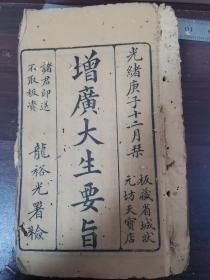 光緒庚子十二月栞
板藏省城狀
元坊天寶店
增廣大生要旨
諸君印送
不取板賫
龍裕光署檢